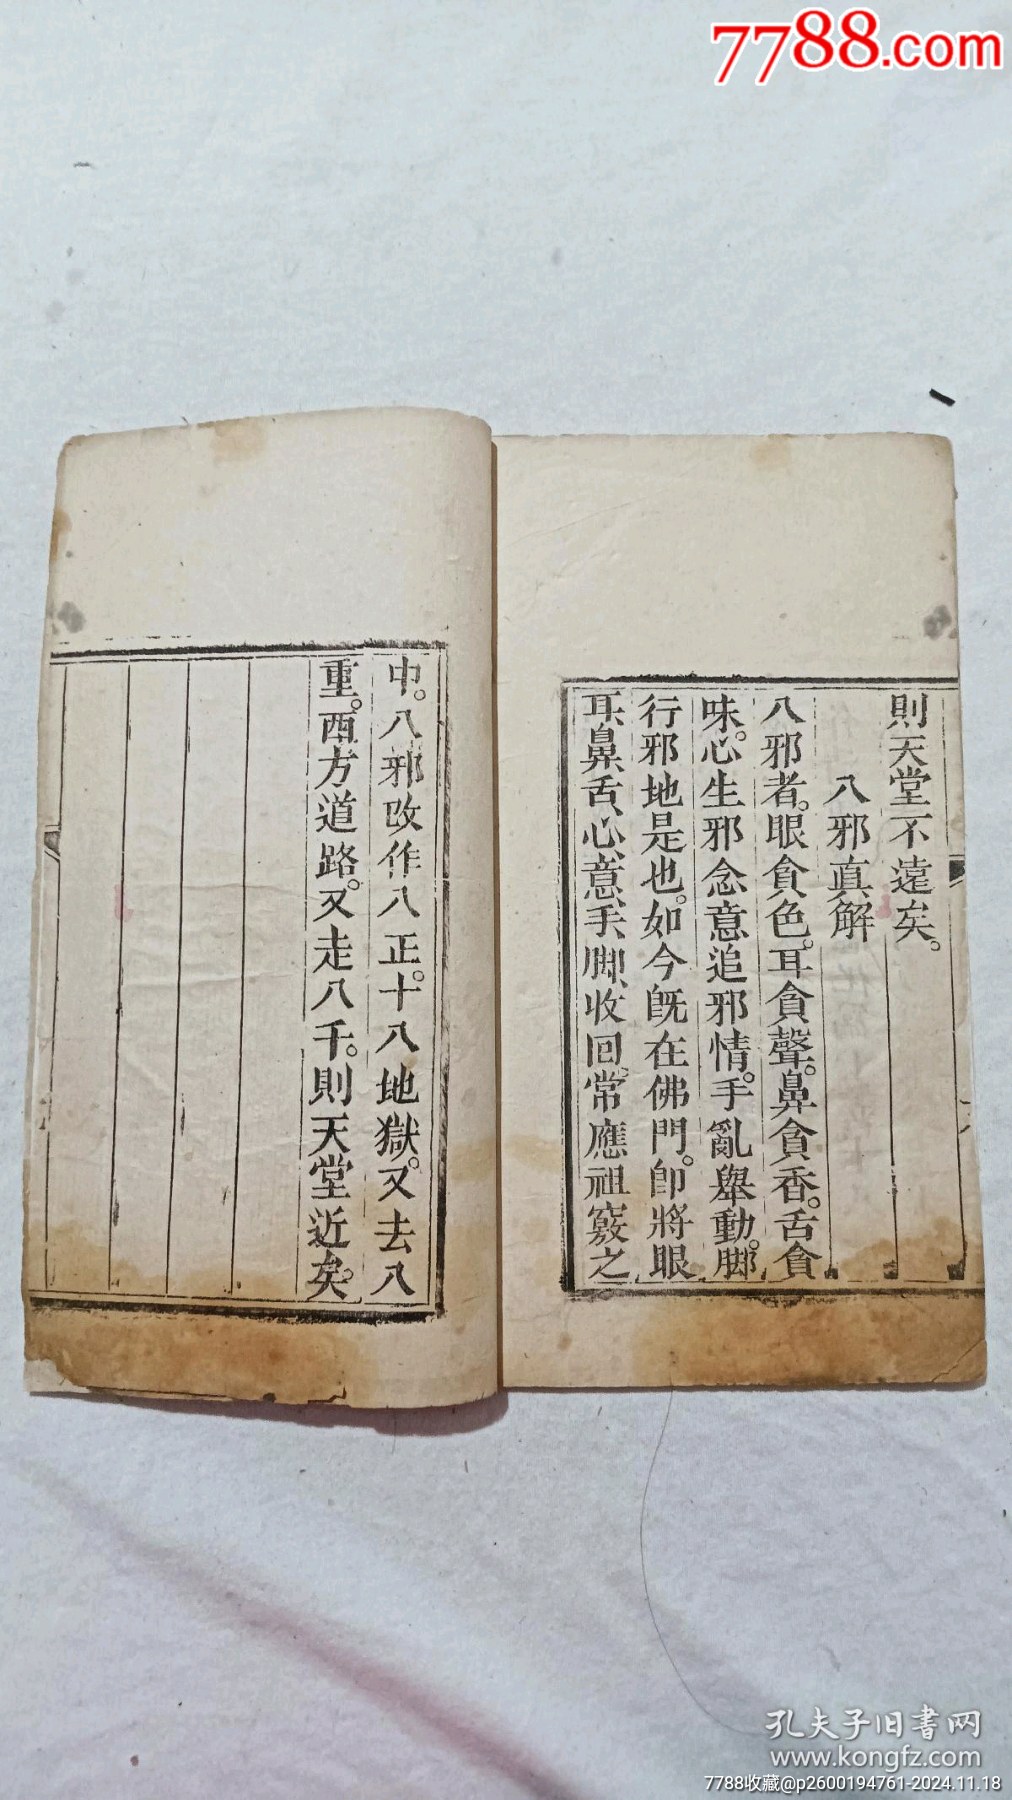 7788.com
則天堂不遠矣。
八邪真解
八邪者。眼貪色。耳貪聲。鼻貪香。舌貪
味。心生邪念意追邪情。手亂舉動。脚
行邪地是也。如今既在佛門。即將眼
耳鼻舌心意手脚收回。常應祖竅之
中。八邪改作八正。十八地獄。又去八
重。西方道路。又走八千。則天堂近矣。
孔夫子旧書网
www.kongfz.com
7788收藏@p2600194761-2024.11.18